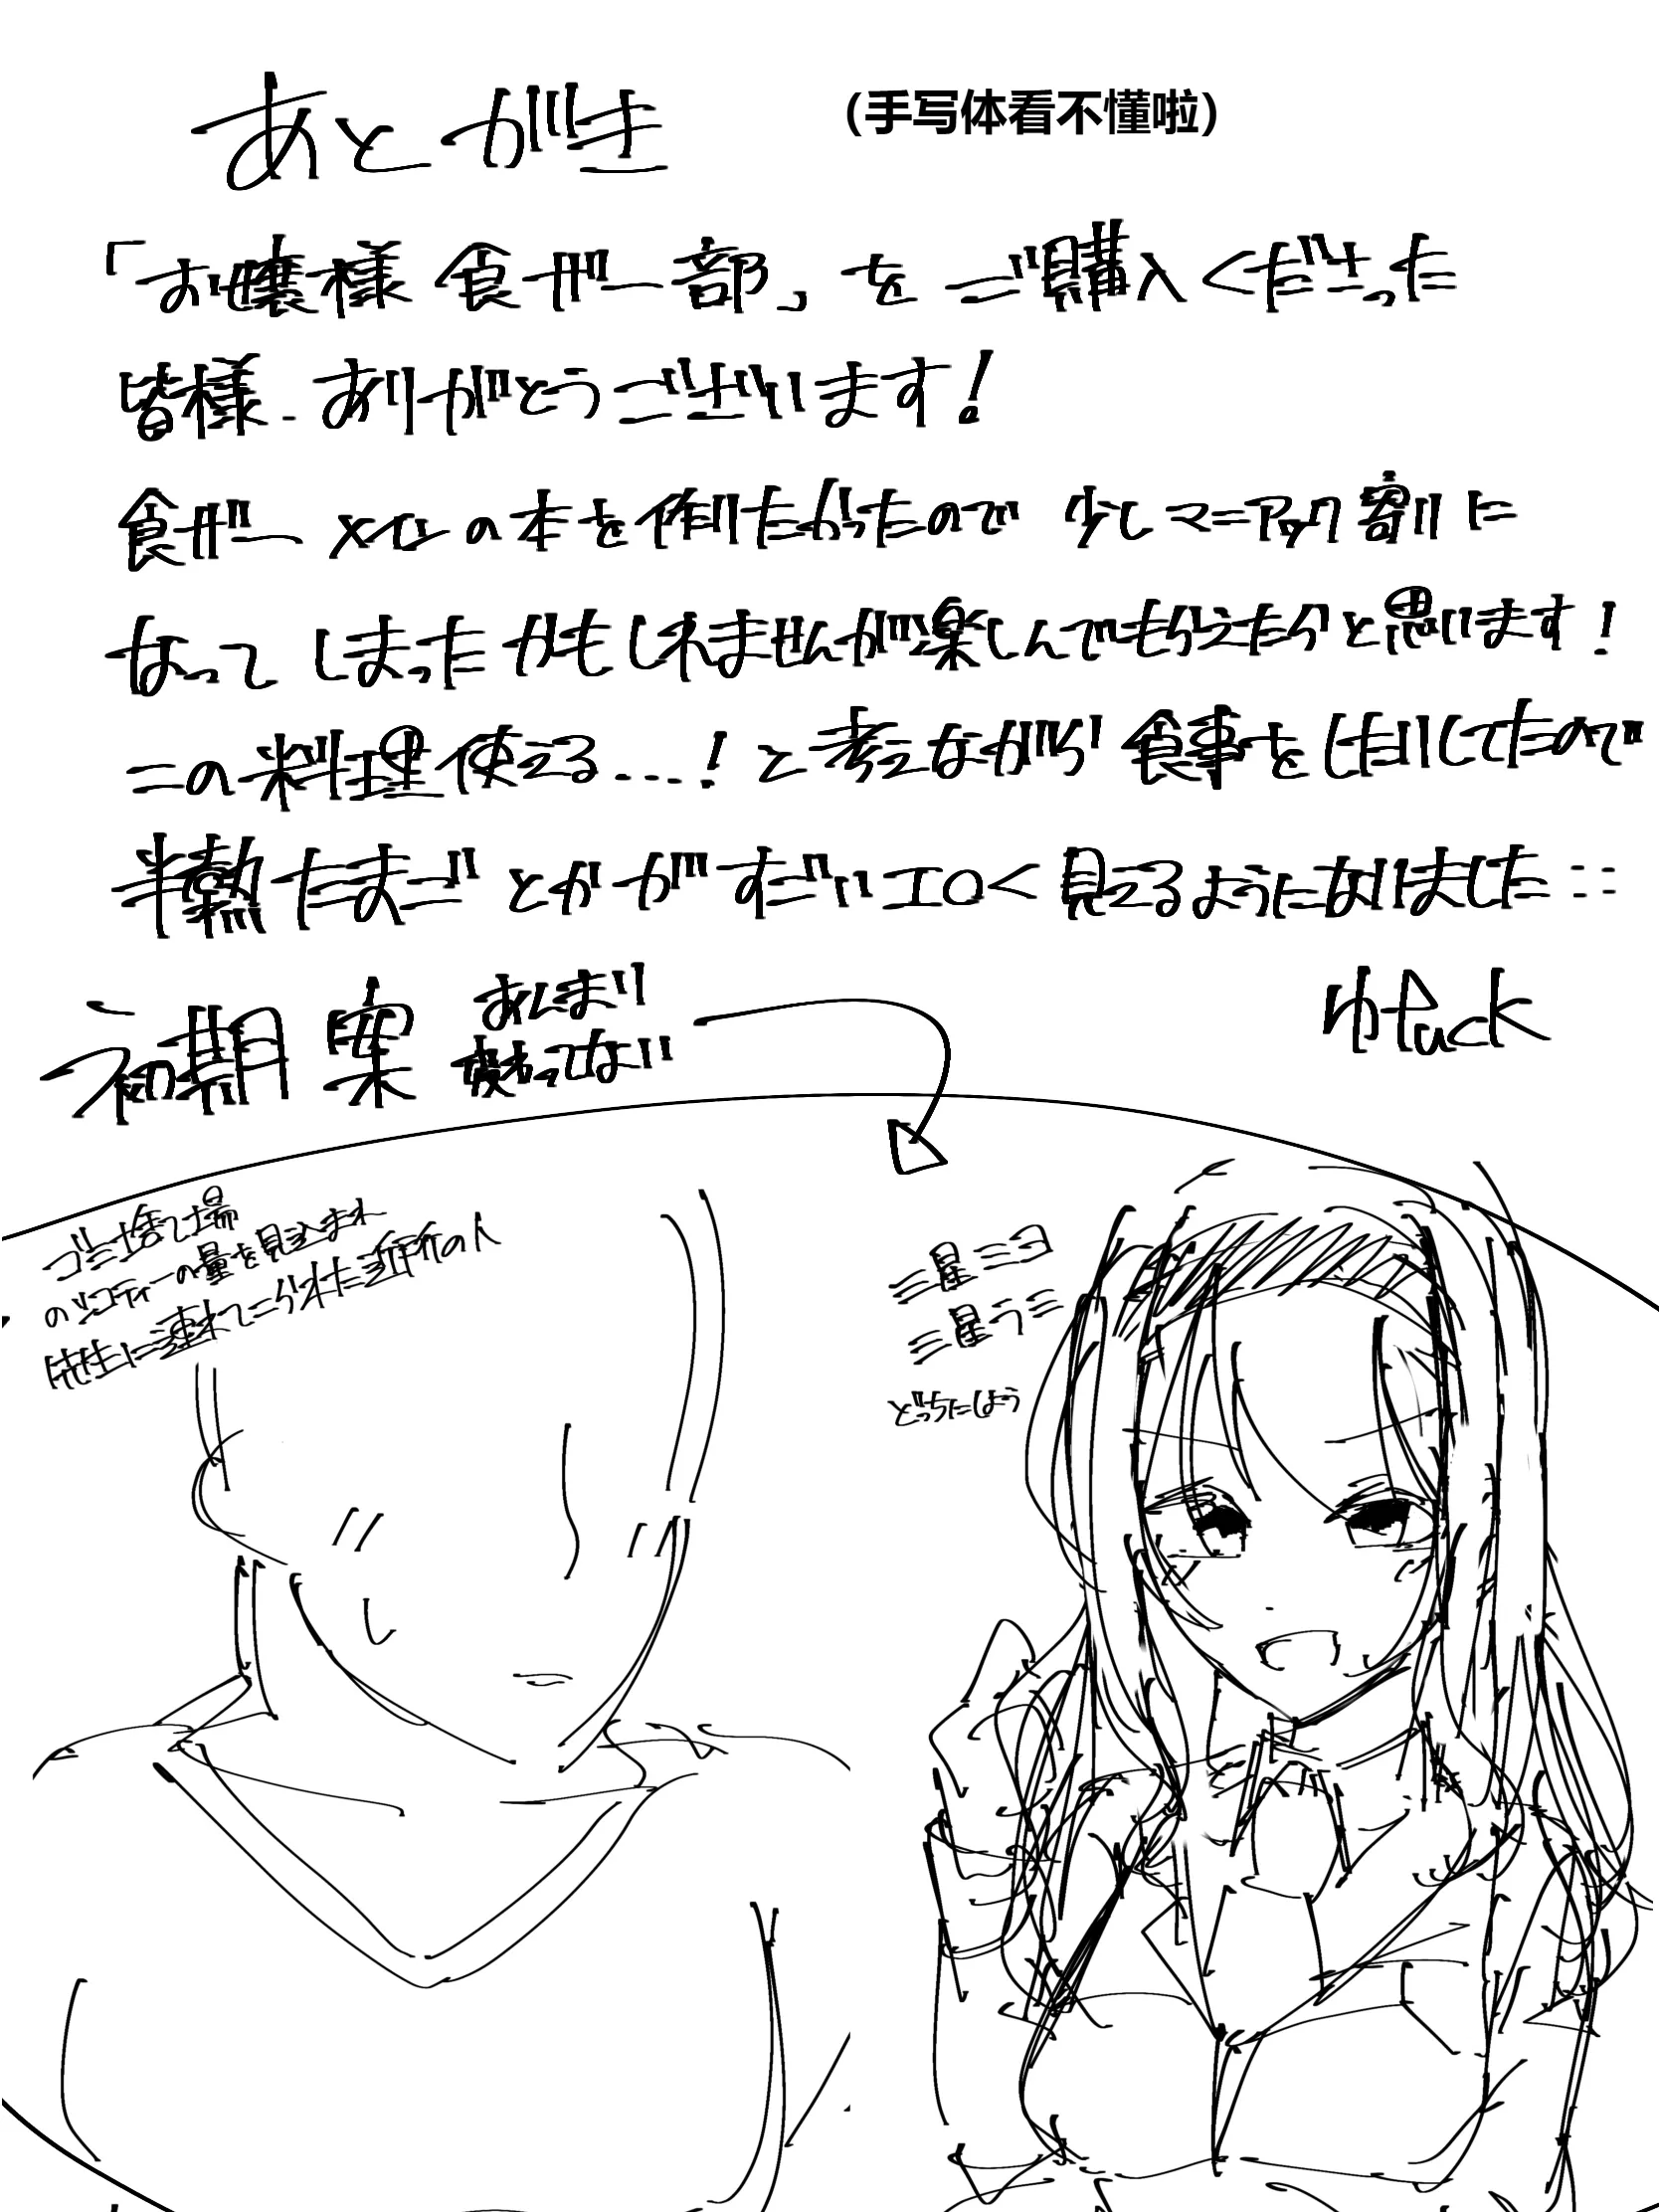 あとがき
(手写体看不懂啦)
「お嬢様食ザー部」をご購入くださった
皆様、ありがとうございます!
食ザーメインの本を作りたかったので少しマニアック寄りに
なってしまったかもしれませんが楽しんでもらえたらと思います!
この料理使える...!と考えながら食事をしたりしてたので
半熟たまごとかがすごいエロく見えるようになりました...
初期案
あんまり
変わってない
ゴミ捨て場
のツコティーの量を見込まれ
先生に連れてこられた近所の人
三星ミヨ
三星うミ
どっちにしよう